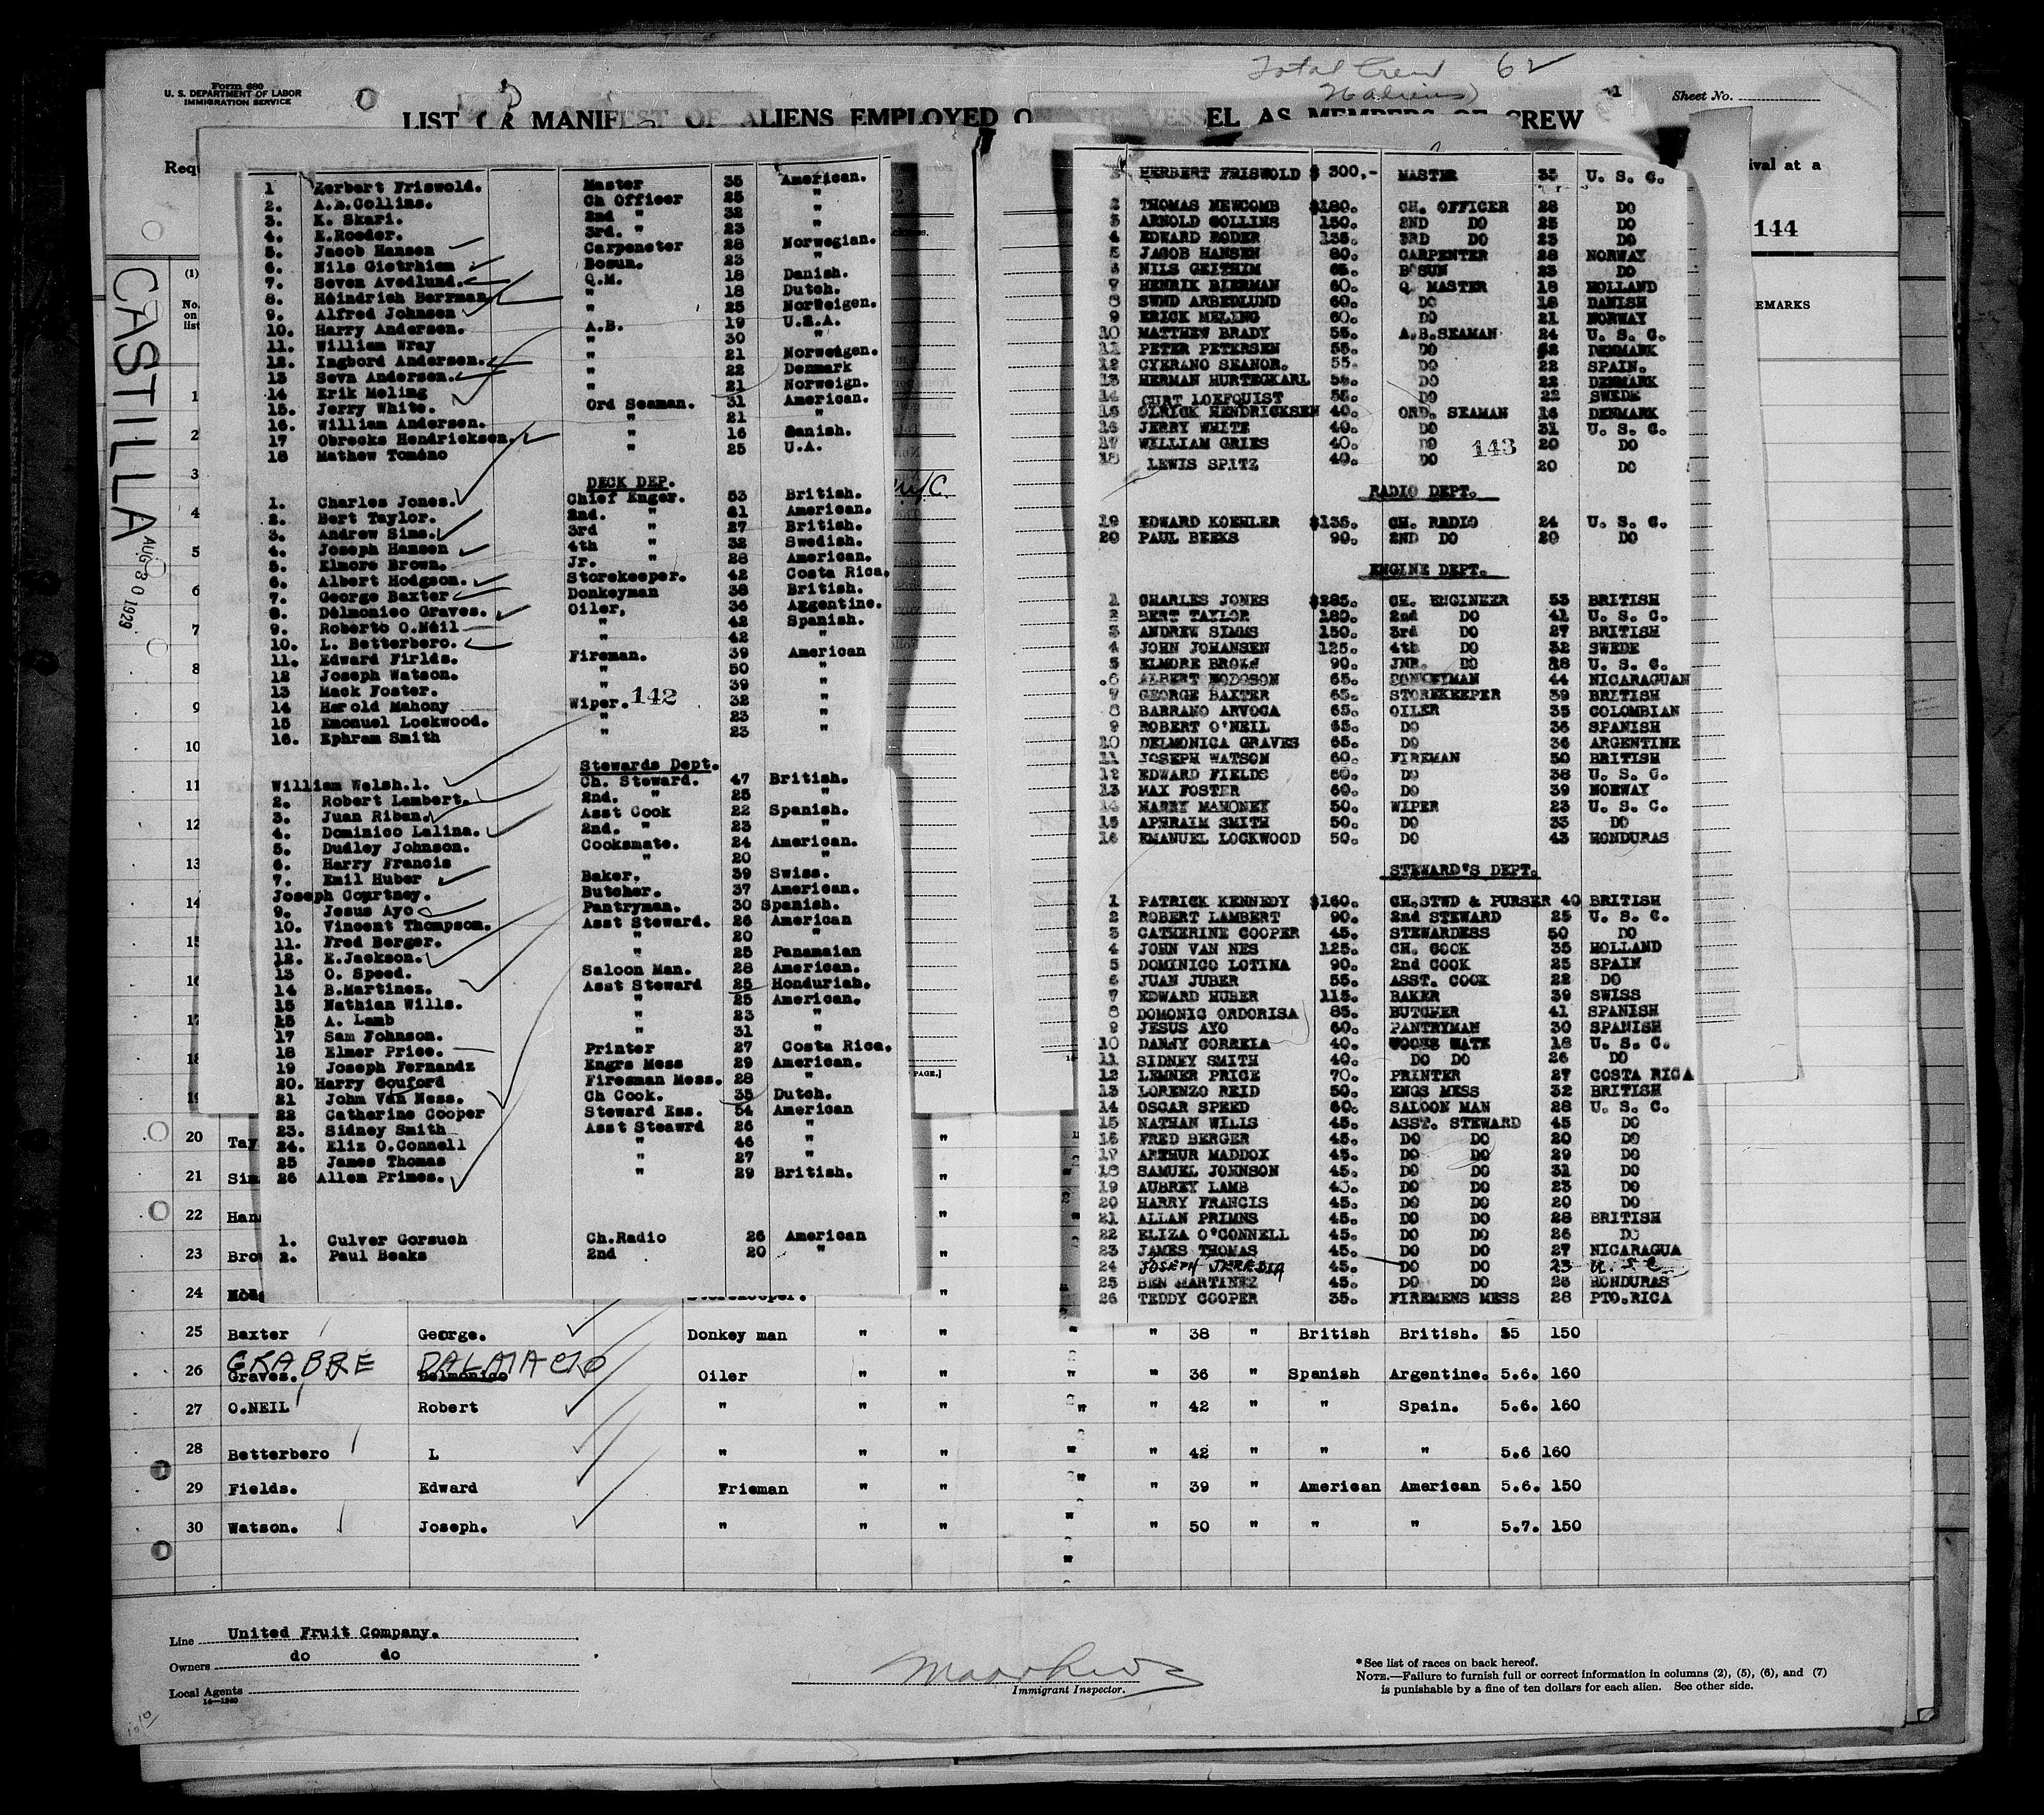 Form 680
U. S. DEPARTMENT OF LABOR
IMMIGRATION SERVICE
Total Crew 62
Sheet No.
LIST OR MANIFEST OF ALIENS EMPLOYED ON THE VESSEL AS MEMBERS OF CREW
144
EMARKS
CASTILLA
AUG 30 1929
(1)
No.
on
list
1 Herbert Friswold. Master 35 American.
2. A.L.Collins. Ch Officer 25 "
3. K. Skari. 2nd " 32 "
4. E.Roeder. 3rd. " 23 "
5. Jacob Hansen Carpeneter 28 Norwegian.
6. Nils Gietrhiem Bosun. 23 "
7. Seven Avedlund. Q.M. 18 Danish.
8. Heindrich Berrman " 18 Dutch.
9. Alfred Johnsen " 25 Norweigen.
10. Harry Andersen. A.B. 19 U.S.A.
11. William Wray " 30 "
12. Ingbord Andersen. " 21 Norwedgen.
13 Sevn Andersen. " 22 Denmark
14 Erik Meling " 21 Norweign.
15. Jerry White. Ord Seaman. 31 American.
16. William Andersen. " 21 "
17 Obrecks Hendricksen. " 16 Danish.
18 Mathew Toméno " 25 U.A.
DECK DEP.
1. Charles Jones. Chief Enger. 53 British.
2. Bert Taylor. 2nd. " 41 American.
3. Andrew Sims. 3rd " 27 British.
4. Joseph Hansen 4th " 32 Swedish.
5. Elmore Brown. Jr. 28 American.
6. Albert Hodgson. Storekeeper. 42 Costa Rica.
7. George Baxter Donkeyman 38 British.
8. Delmonico Graves. Oiler, 36 Aggentine.
9. Roberto O.Neil " 42 Spanish.
10. L. Betterbero. " 42 "
11. Edward Firlds. Fireman. 39 American
12 Joseph Watson. " 50 "
13 Mack Foster. " 39 "
14 Herold Mahony Wiper. 32 "
142
15 Emonuel Lockwood. " 23 "
16. Ephram Smith " 23 "
Stewards Dept.
William Welsh.1. Ch. Steward. 47 British.
2. Robert Lambert. 2nd. " 25 "
3. Juan Riban. Asst Cook 22 Spanish.
4. Dominico Lalina. 2nd. " 23 "
5. Dudley Johnson. Cooksmate. 24 American.
6. Harry Francis " 20 "
7. Emil Huber Baker. 39 Swiss.
Joseph Courtney. Butcher. 37 American.
9. Jesus Ayo Pantryman. 30 Spanish.
10. Vincent Thompson. Asst Steward. 26 American
11. Fred Berger. " 20 "
12. E.Jackson. " 25 Panamaian
13 O. Speed. Saloon Man. 28 American.
14 B.Martinez. Asst Steward 25 Honduriah.
15 Nathian Wills. " 25 American.
16 A. Lamb " 23 "
17 Sam Johnson. " 31 "
18 Elmer Price. Printer 27 Costa Rica.
19 Joseph Fernandz Engrs Mess 29 American.
20. Harry Gouford Firesman Mess. 28 "
21 John Van Ness. Ch Cook. 35 Dutch.
22 Catherine Cooper Steward Ess. 54 American
23. Sidney Smith Asst Steawrd 26 "
24. Eliz O.Connell " 46 "
25 James Thomas " 27 "
26 Allen Primes. " 29 British.
1. Culver Gorsuch Ch.Radio 26 American
2. Paul Beaks 2nd 20 "
1 HERBERT FRISWOLD $ 300,- MASTER 35 U. S. C.
2 THOMAS NEWCOMB $180. CH. OFFICER 28 DO
3 ARNOLD COLLINS 150. 2ND DO 25 DO
4 EDWARD RODER 135. 3RD DO 23 DO
5 JACOB HANSEN 80. CARPENTER 28 NORWAY
6 NILS GEITHIM 65. B'SUN 23 DO
7 HENRIK BIERMAN 60. Q MASTER 18 HOLLAND
8 SWND ARBEDLUND 60. DO 18 DANISH
9 ERICK MELING 60. DO 21 NORWAY
10 MATTHEW BRADY 55. A.B.SEAMAN 24 U. S. C.
11 PETER PETERSEN 55. DO 22 DENMARK
12 CYERANO SEANOR. 55. DO 22 SPAIN.
13 HERMAN HURTEGKARL 55. DO 22 DENMARK
14 CURT LOEFQUIST 55. DO 22 SWEDE
15 OLRYCK HENDRICKSEN 40. ORD. SEAMAN 16 DENMARK
16 JERRY WHITE 40. DO 31 U. S. C.
17 WILLIAM GRIES 40. DO 20 DO
143
18 LEWIS SPITZ 40. DO 20 DO
RADIO DEPT.
19 EDWARD KOEHLER $135. CH. RADIO 24 U. S. C.
20 PAUL BEEKS 90. 2ND DO 20 DO
ENGINE DEPT.
1 CHARLES JONES $285. CH. ENGINEER 53 BRITISH
2 BERT TAYLOR 180. 2nd DO 41 U. S. C.
3 ANDREW SIMMS 150. 3rd DO 27 BRITISH
4 JOHN JOHANSEN 125. 4th DO 32 SWEDE
5 ELMORE BROWN 90. JNR. DO 28 U. S. C.
6 ALBERT HODGSON 65. DONKEYMAN 44 NICARAGUAN
7 GEORGE BAXTER 65. STOREKEEPER 39 BRITISH
8 BARRANO ARVOCA 65. OILER 35 COLOMBIAN
9 ROBERT O'NEIL 65. DO 36 SPANISH
10 DELMONICA GRAVES 65. DO 36 ARGENTINE
11 JOSEPH WATSON 60. FIREMAN 50 BRITISH
12 EDWARD FIELDS 60. DO 38 U. S. C.
13 MAX FOSTER 60. DO 39 NORWAY
14 HARRY MAHONEY 50. WIPER 23 U. S. C.
15 APHRAIM SMITH 50. DO 33 DO
16 EMANUEL LOCKWOOD 50. DO 43 HONDURAS
STEWARD'S DEPT.
1 PATRICK KENNEDY $160. CH.STWD & PURSER 40 BRITISH
2 ROBERT LAMBERT 90. 2nd STEWARD 25 U. S. C.
3 CATHERINE COOPER 45. STEWARDESS 50 DO
4 JOHN VAN NES 125. CH. COOK 35 HOLLAND
5 DOMINICO LOTINA 90. 2nd COOK 25 SPAIN
6 JUAN JUBER 55. ASST. COOK 22 DO
7 EDWARD HUBER 115. BAKER 39 SWISS
8 DOMONIC ORDORISA 85. BUTCHER 41 SPANISH
9 JESUS AYO 60. PANTRYMAN 30 SPANISH
10 DANNY CORREIA 40. COOKS MATE 18 U. S. C.
11 SIDNEY SMITH 40. DO DO 26 DO
12 LEMNER PRICE 70. PRINTER 27 COSTA RICA
13 LORENZO REID 50. ENGS MESS 32 BRITISH
14 OSCAR SPEED 60. SALOON MAN 28 U. S. C.
15 NATHAN WILLS 45. ASST. STEWARD 45 DO
16 FRED BERGER 45. DO DO 20 DO
17 ARTHUR MADDOX 45. DO DO 29 DO
18 SAMUEL JOHNSON 45. DO DO 31 DO
19 AUBREY LAMB 45. DO DO 23 DO
20 HARRY FRANCIS 45. DO DO 20 DO
21 ALLAN PRIMNS 45. DO DO 28 BRITISH
22 ELIZA O'CONNELL 45. DO DO 26 DO
23 JAMES THOMAS 45. DO DO 27 NICARAGUA
24 JOSEPH 45. DO DO 23 U. S. C.
25 BEN MARTINEZ 45. DO DO 26 HONDURAS
26 TEDDY COOPER 35. FIREMENS MESS 28 PTO.RICA
20 Tay
21 Sim
22 Han
23 Bro
24 Storekeeper. "
25 Baxter George. Donkey man " " " " 38 " British British. 55 150
GRABRE DALMACIO
26 Graves. Delmonico Oiler " " " " 36 " Spanish Argentine. 5.6. 160
27 O.NEIL Robert " " " " " 42 " " Spain. 5.6. 160
28 Betterbero L " " " " " 42 " " " 5.6 160
29 Fields. Edward Frieman " " " " 39 " American American 5.6. 150
30 Watson. Joseph. " " " " " 50 " " " 5.7. 150
Line United Fruit Company.
Owners do do
Local Agents
14—1240
Immigrant Inspector.
* See list of races on back hereof.
NOTE.—Failure to furnish full or correct information in columns (2), (5), (6), and (7)
is punishable by a fine of ten dollars for each alien. See other side.